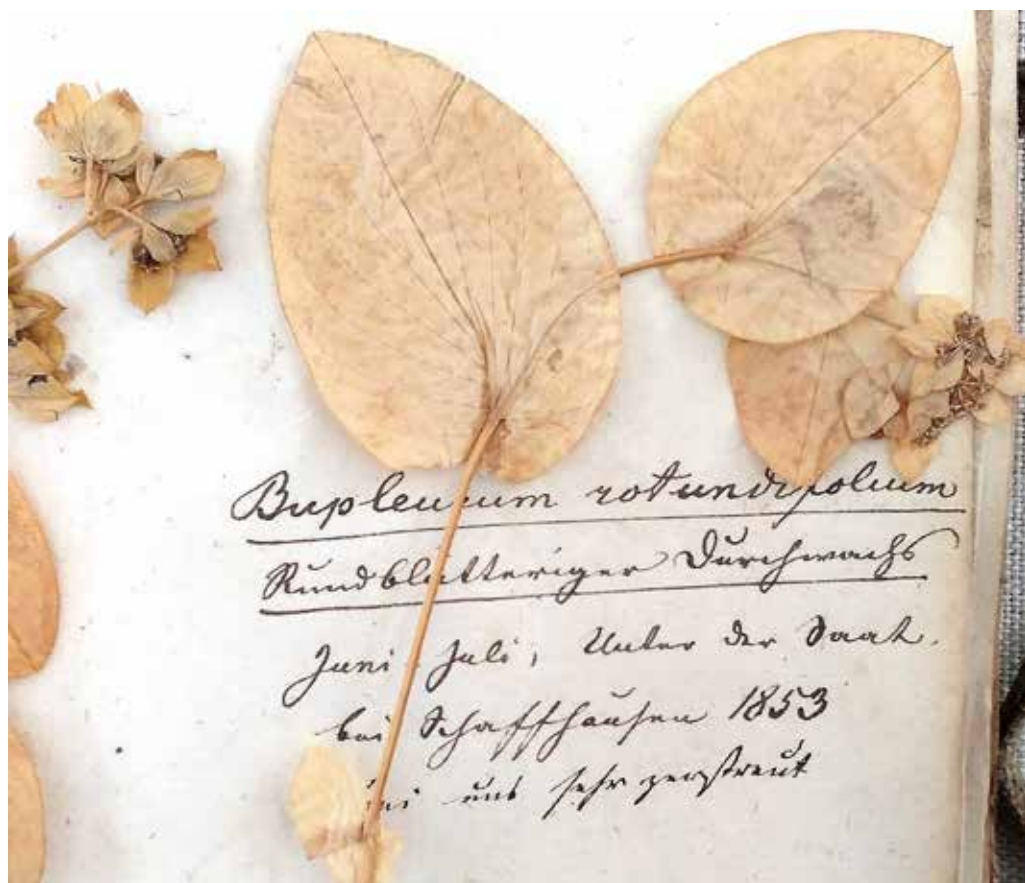 Bupleurum rotundifolium
Rundblätteriger Durchwachs
Juni Juli, Unter der Saat.
bei Schaffhausen 1853
bei uns sehr zerstreut